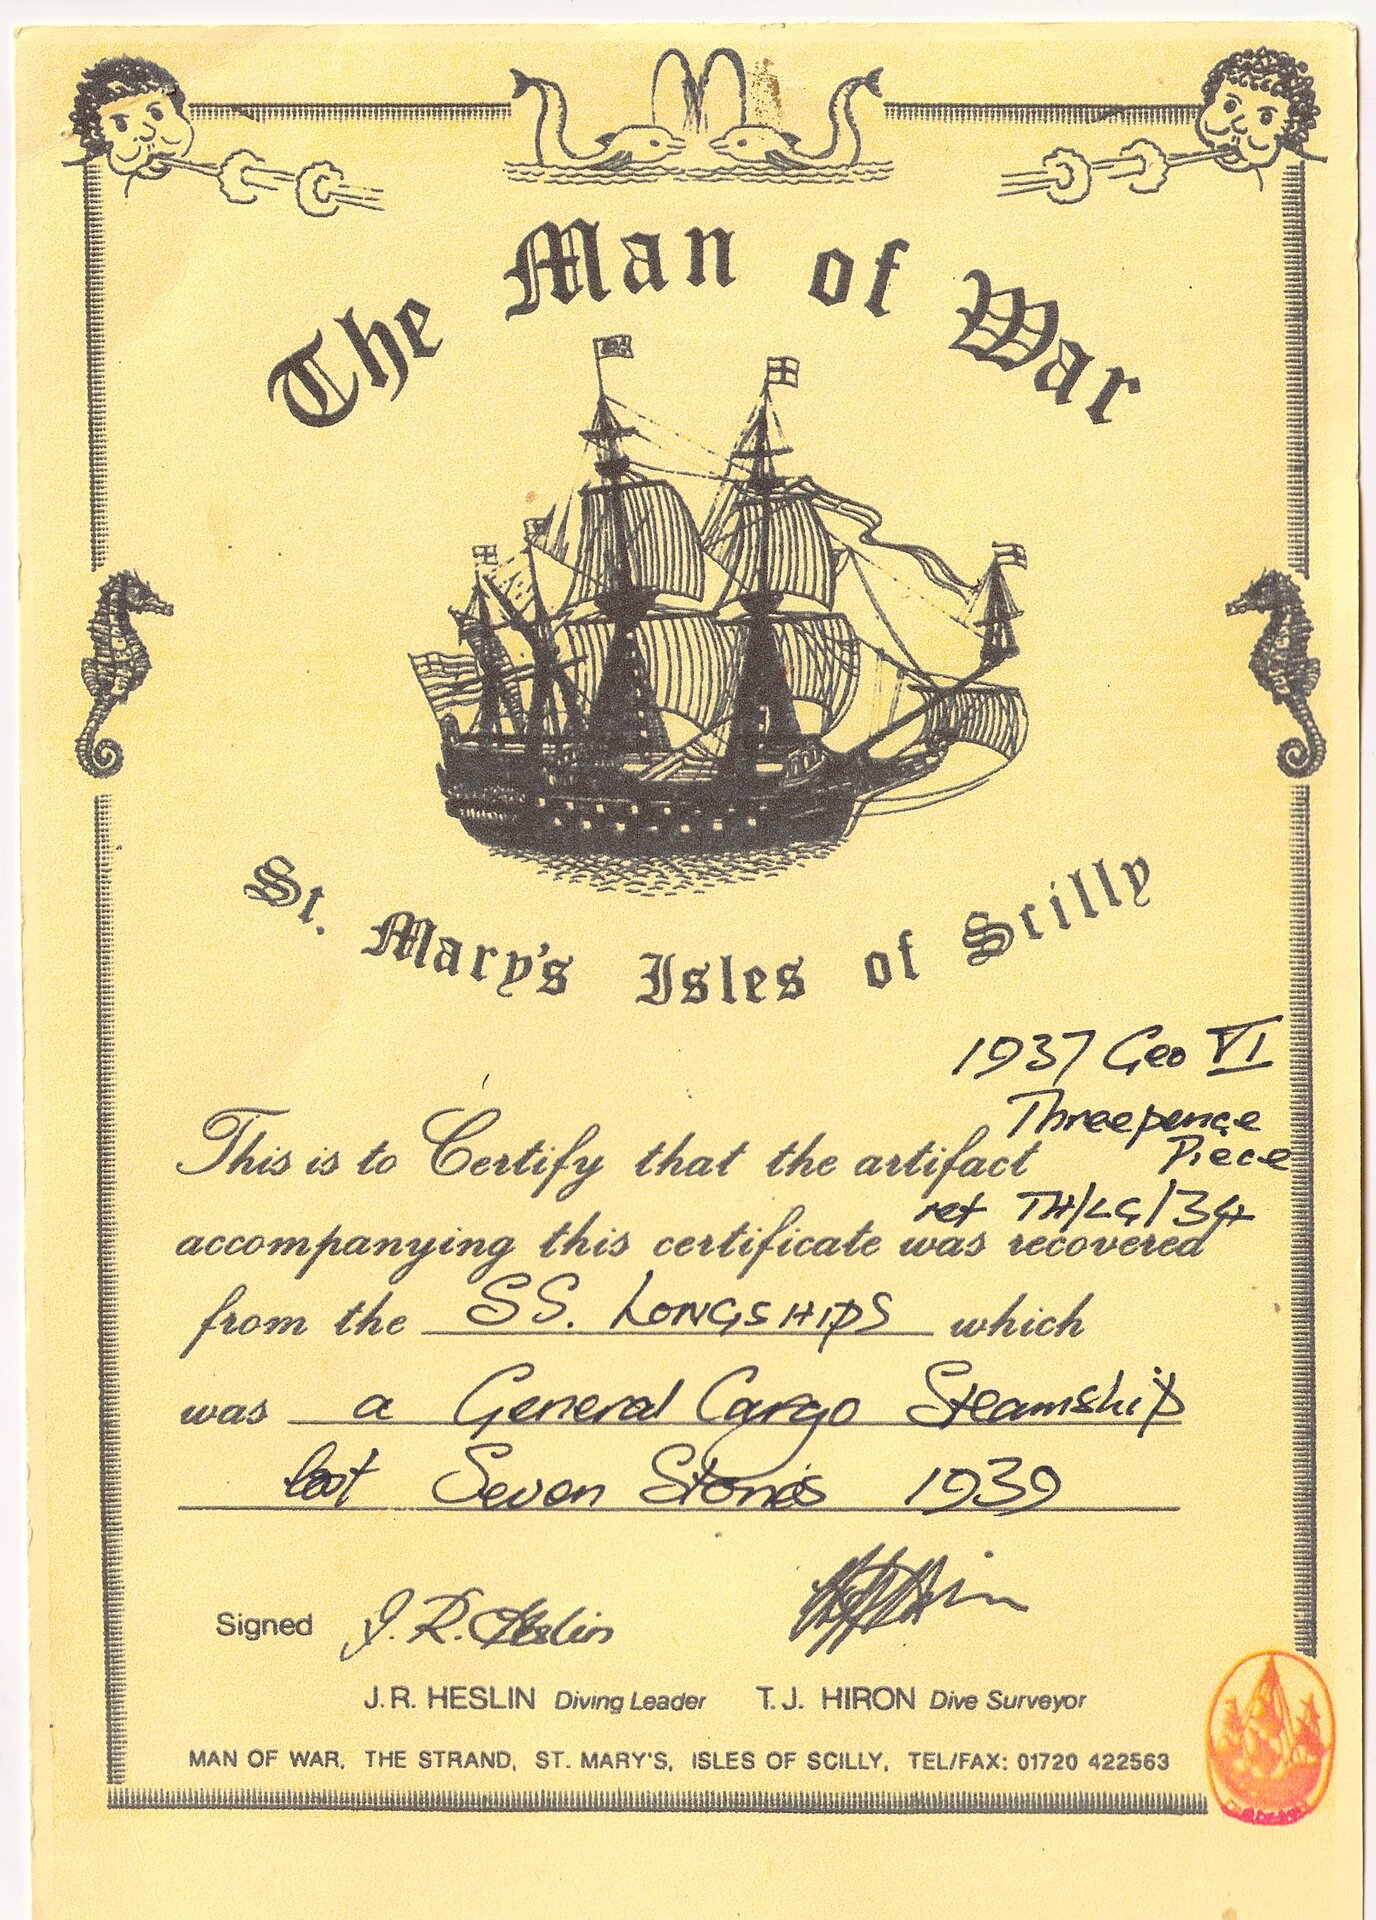 The Man of War
St. Mary's Isles of Scilly
1937 Geo VI
Threepence
Piece
This is to Certify that the artifact
ref TH/LG/34
accompanying this certificate was recovered
from the SS. LONGSHIPS which
was a General Cargo Steamship
lost Seven Stones 1939
Signed J. R. Heslin
J. R. HESLIN Diving Leader T. J. HIRON Dive Surveyor
MAN OF WAR, THE STRAND, ST. MARY'S, ISLES OF SCILLY, TEL/FAX: 01720 422563